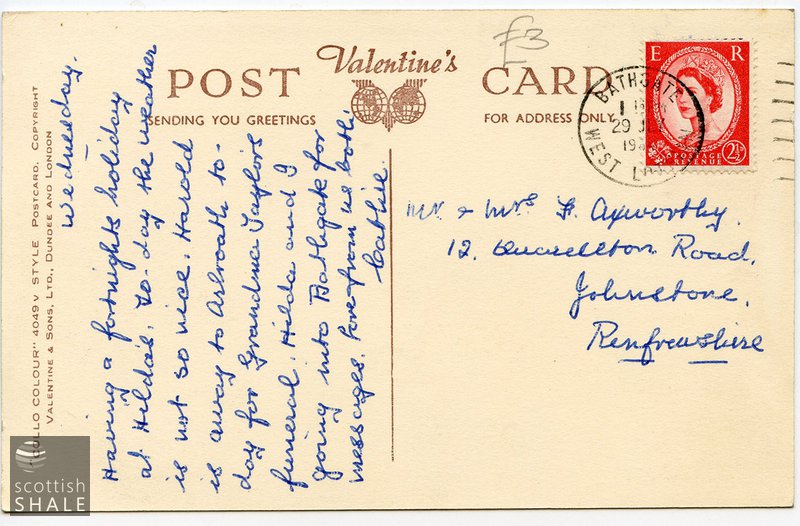 £3
POST
Valentine's
CARD
SENDING YOU GREETINGS
FOR ADDRESS ONLY
E R
POSTAGE
REVENUE
2½
BATHGATE
29
19
WEST
Wednesday.
Having a fortnights holiday
at Hilda's. To-day the weather
is not so nice. Harold
is away to Arbroath to-
day for Grandma Taylors
funeral. Hilda and I
going into Bathgate for
messages. Love from us both
Cathie.
Mr. & Mrs F. Axworthy.
12, Quarrelton Road,
Johnstone,
Renfrewshire
COLLO COLOUR" 4049 V STYLE POSTCARD. COPYRIGHT
VALENTINE & SONS, LTD., DUNDEE AND LONDON
scottish
SHALE